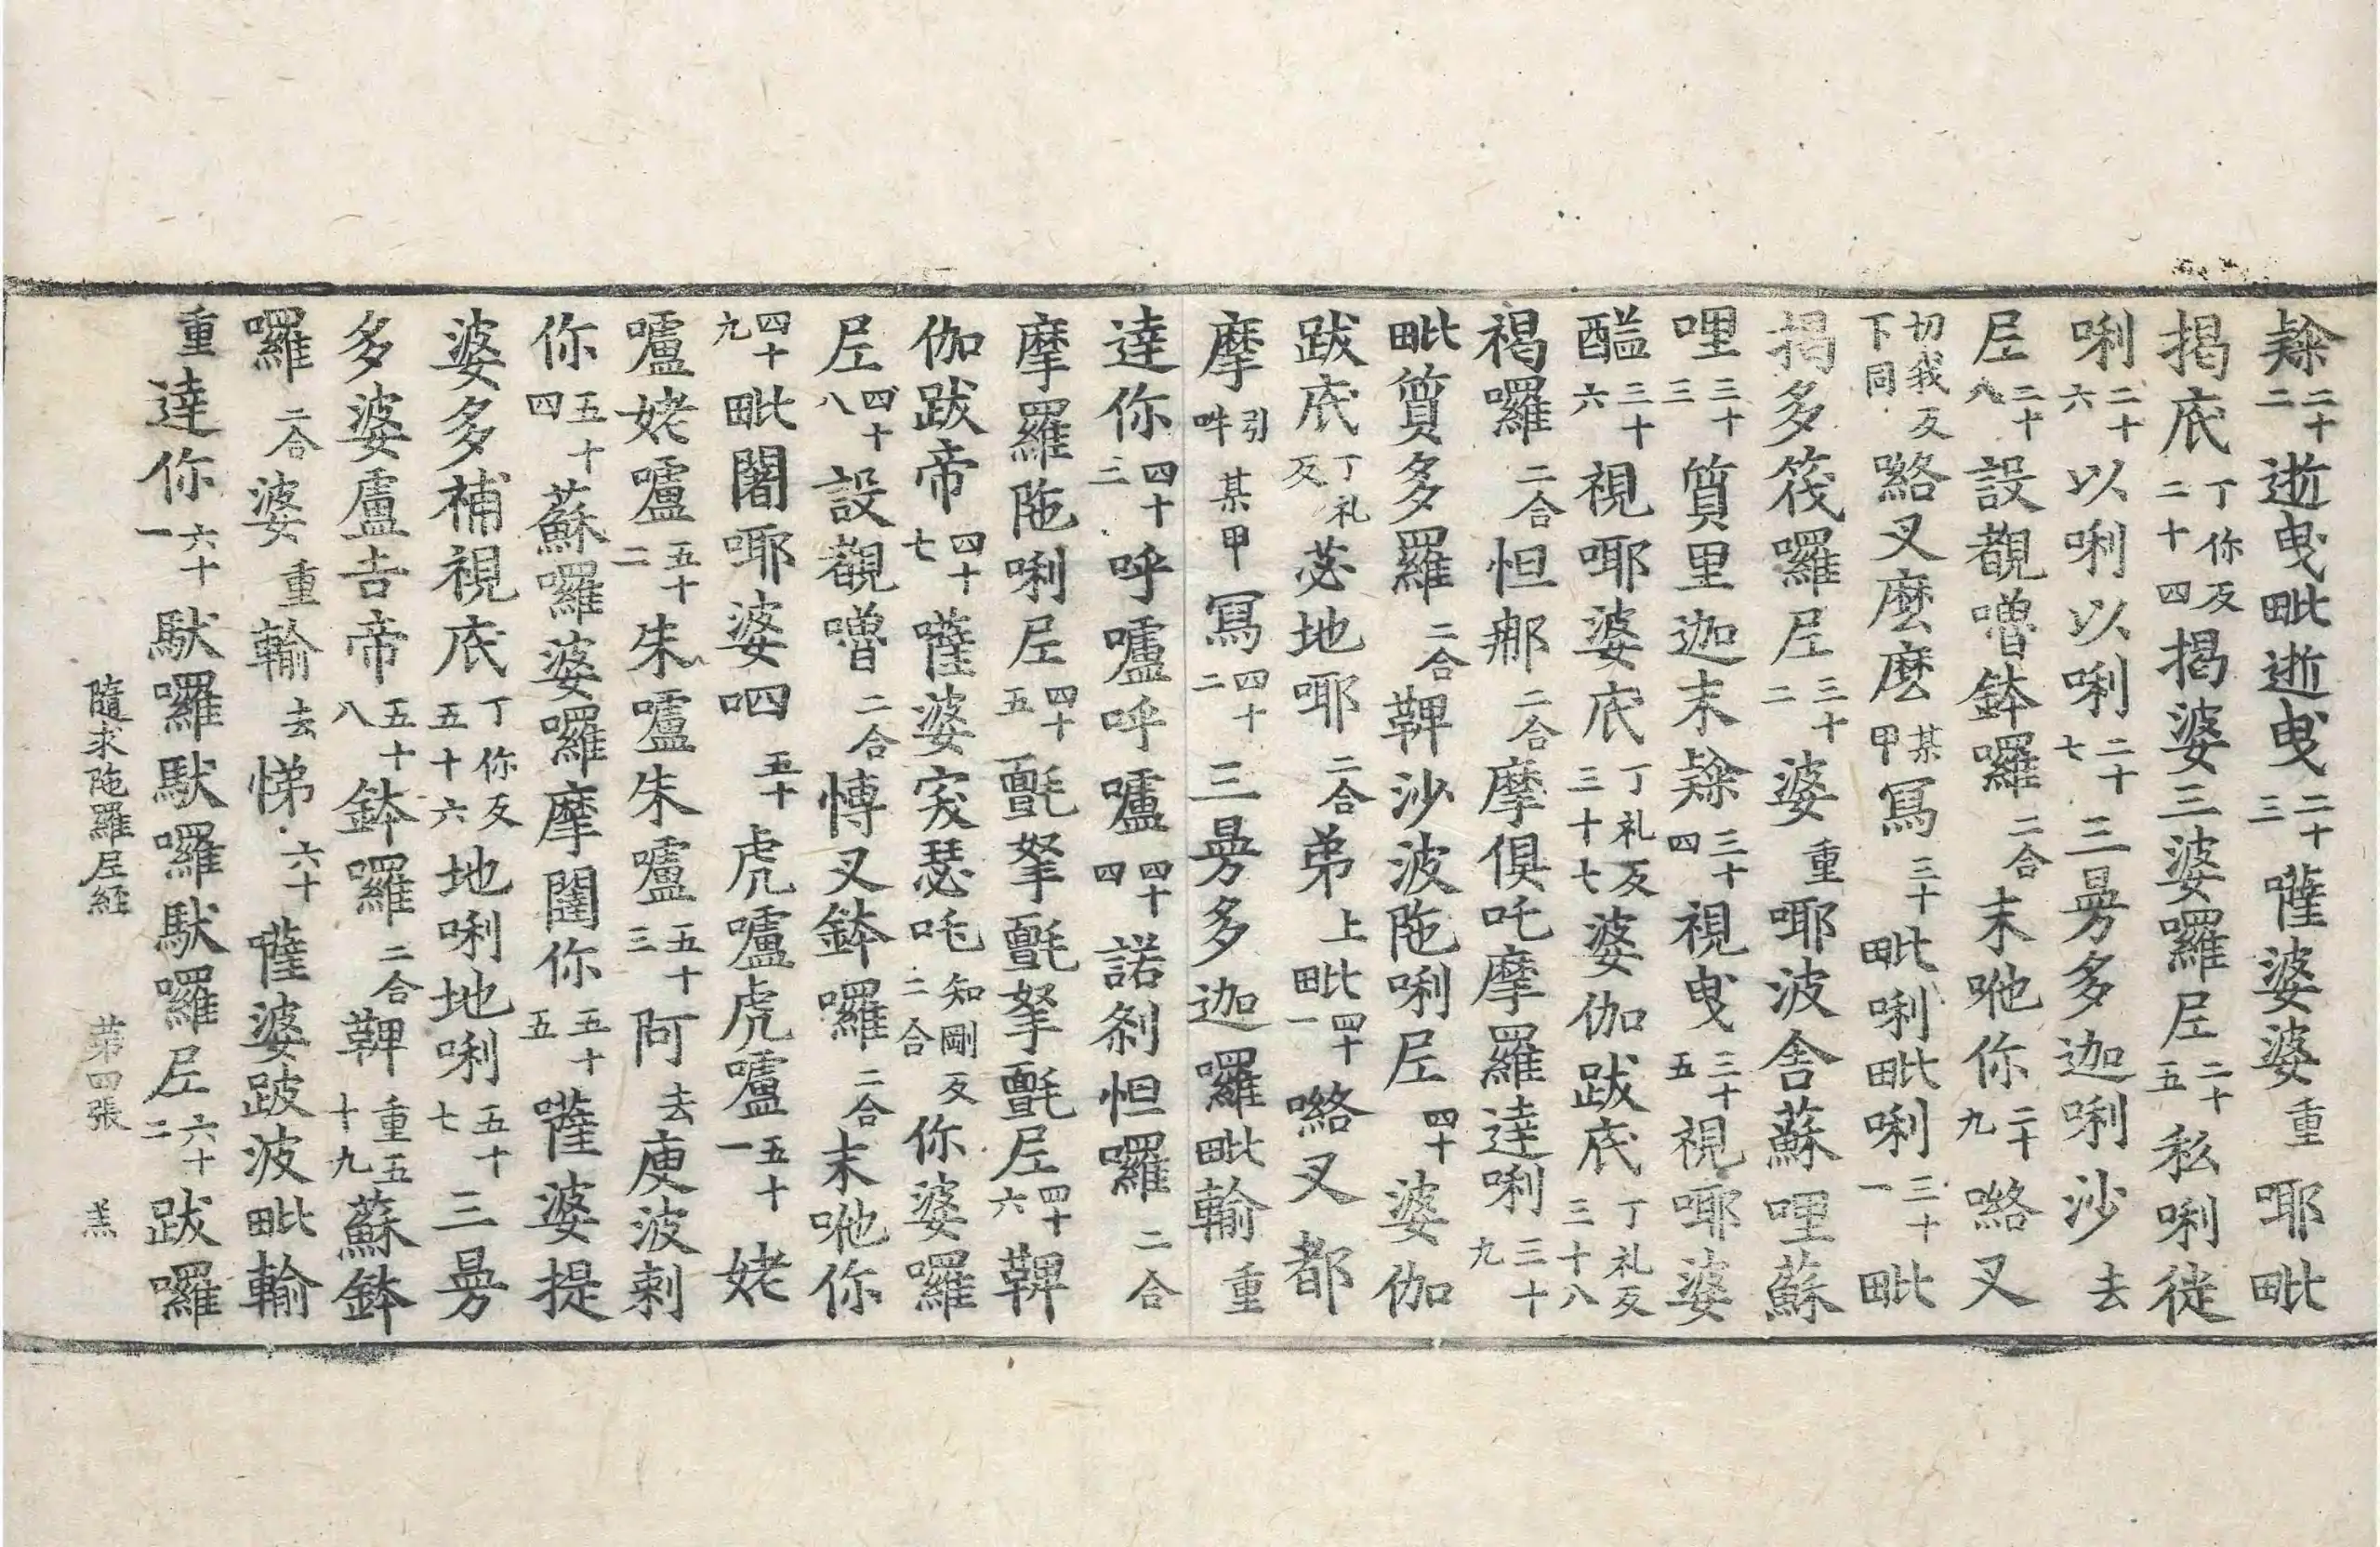 隸二十二逝曳毗逝曳二十三薩婆婆重耶毗
揭底丁你反二十四揭婆三婆囉尼二十五私唎徙
唎二十六以唎以唎二十七三曼多迦唎沙去
尼二十八設覩嚕鉢囉二合末咃你二十九咯叉
切我反下同咯叉麽麽某甲寫三十毗唎毗唎三十一毗
揭多筏囉尼三十二婆重耶波舍蘇哩蘇
哩三十三質里迦末隸三十四視曳三十五視耶婆
醯三十六視耶婆底丁礼反三十七婆伽跋底丁礼反三十八
褐囉二合怛那二合摩俱吒摩羅達唎三十九
毗質多羅二合鞞沙波陁唎尼四十婆伽
跋底丁礼反苾地耶二合弟上毗四十一咯叉都
摩引吽某甲寫四十二三曼多迦囉毗輸重
達你四十三呼嚧呼嚧四十四諾剎怛囉二合
摩羅陁唎尼四十五㲲拏㲲拏㲲尼四十六鞞
伽跋帝四十七薩婆突瑟吒知剛反二合你婆囉
尼四十八設覩嚕二合愽叉鉢囉二合末咃你
四十九毗闍耶婆呬五十虎嚧虎嚧五十一姥
嚧姥嚧五十二朱嚧朱嚧五十三阿去庾波剌
你五十四蘇囉婆囉摩闥你五十五薩婆提
婆多補視底丁你反五十六地唎地唎五十七三曼
多婆盧吉帝五十八鉢囉二合鞞重五十九蘇鉢
囉二合婆重輸去悌六十薩婆跛波毗輸
重達你六十一馱囉馱囉馱囉尼六十二跋囉
隨求陁羅尼經 苐四張 羔